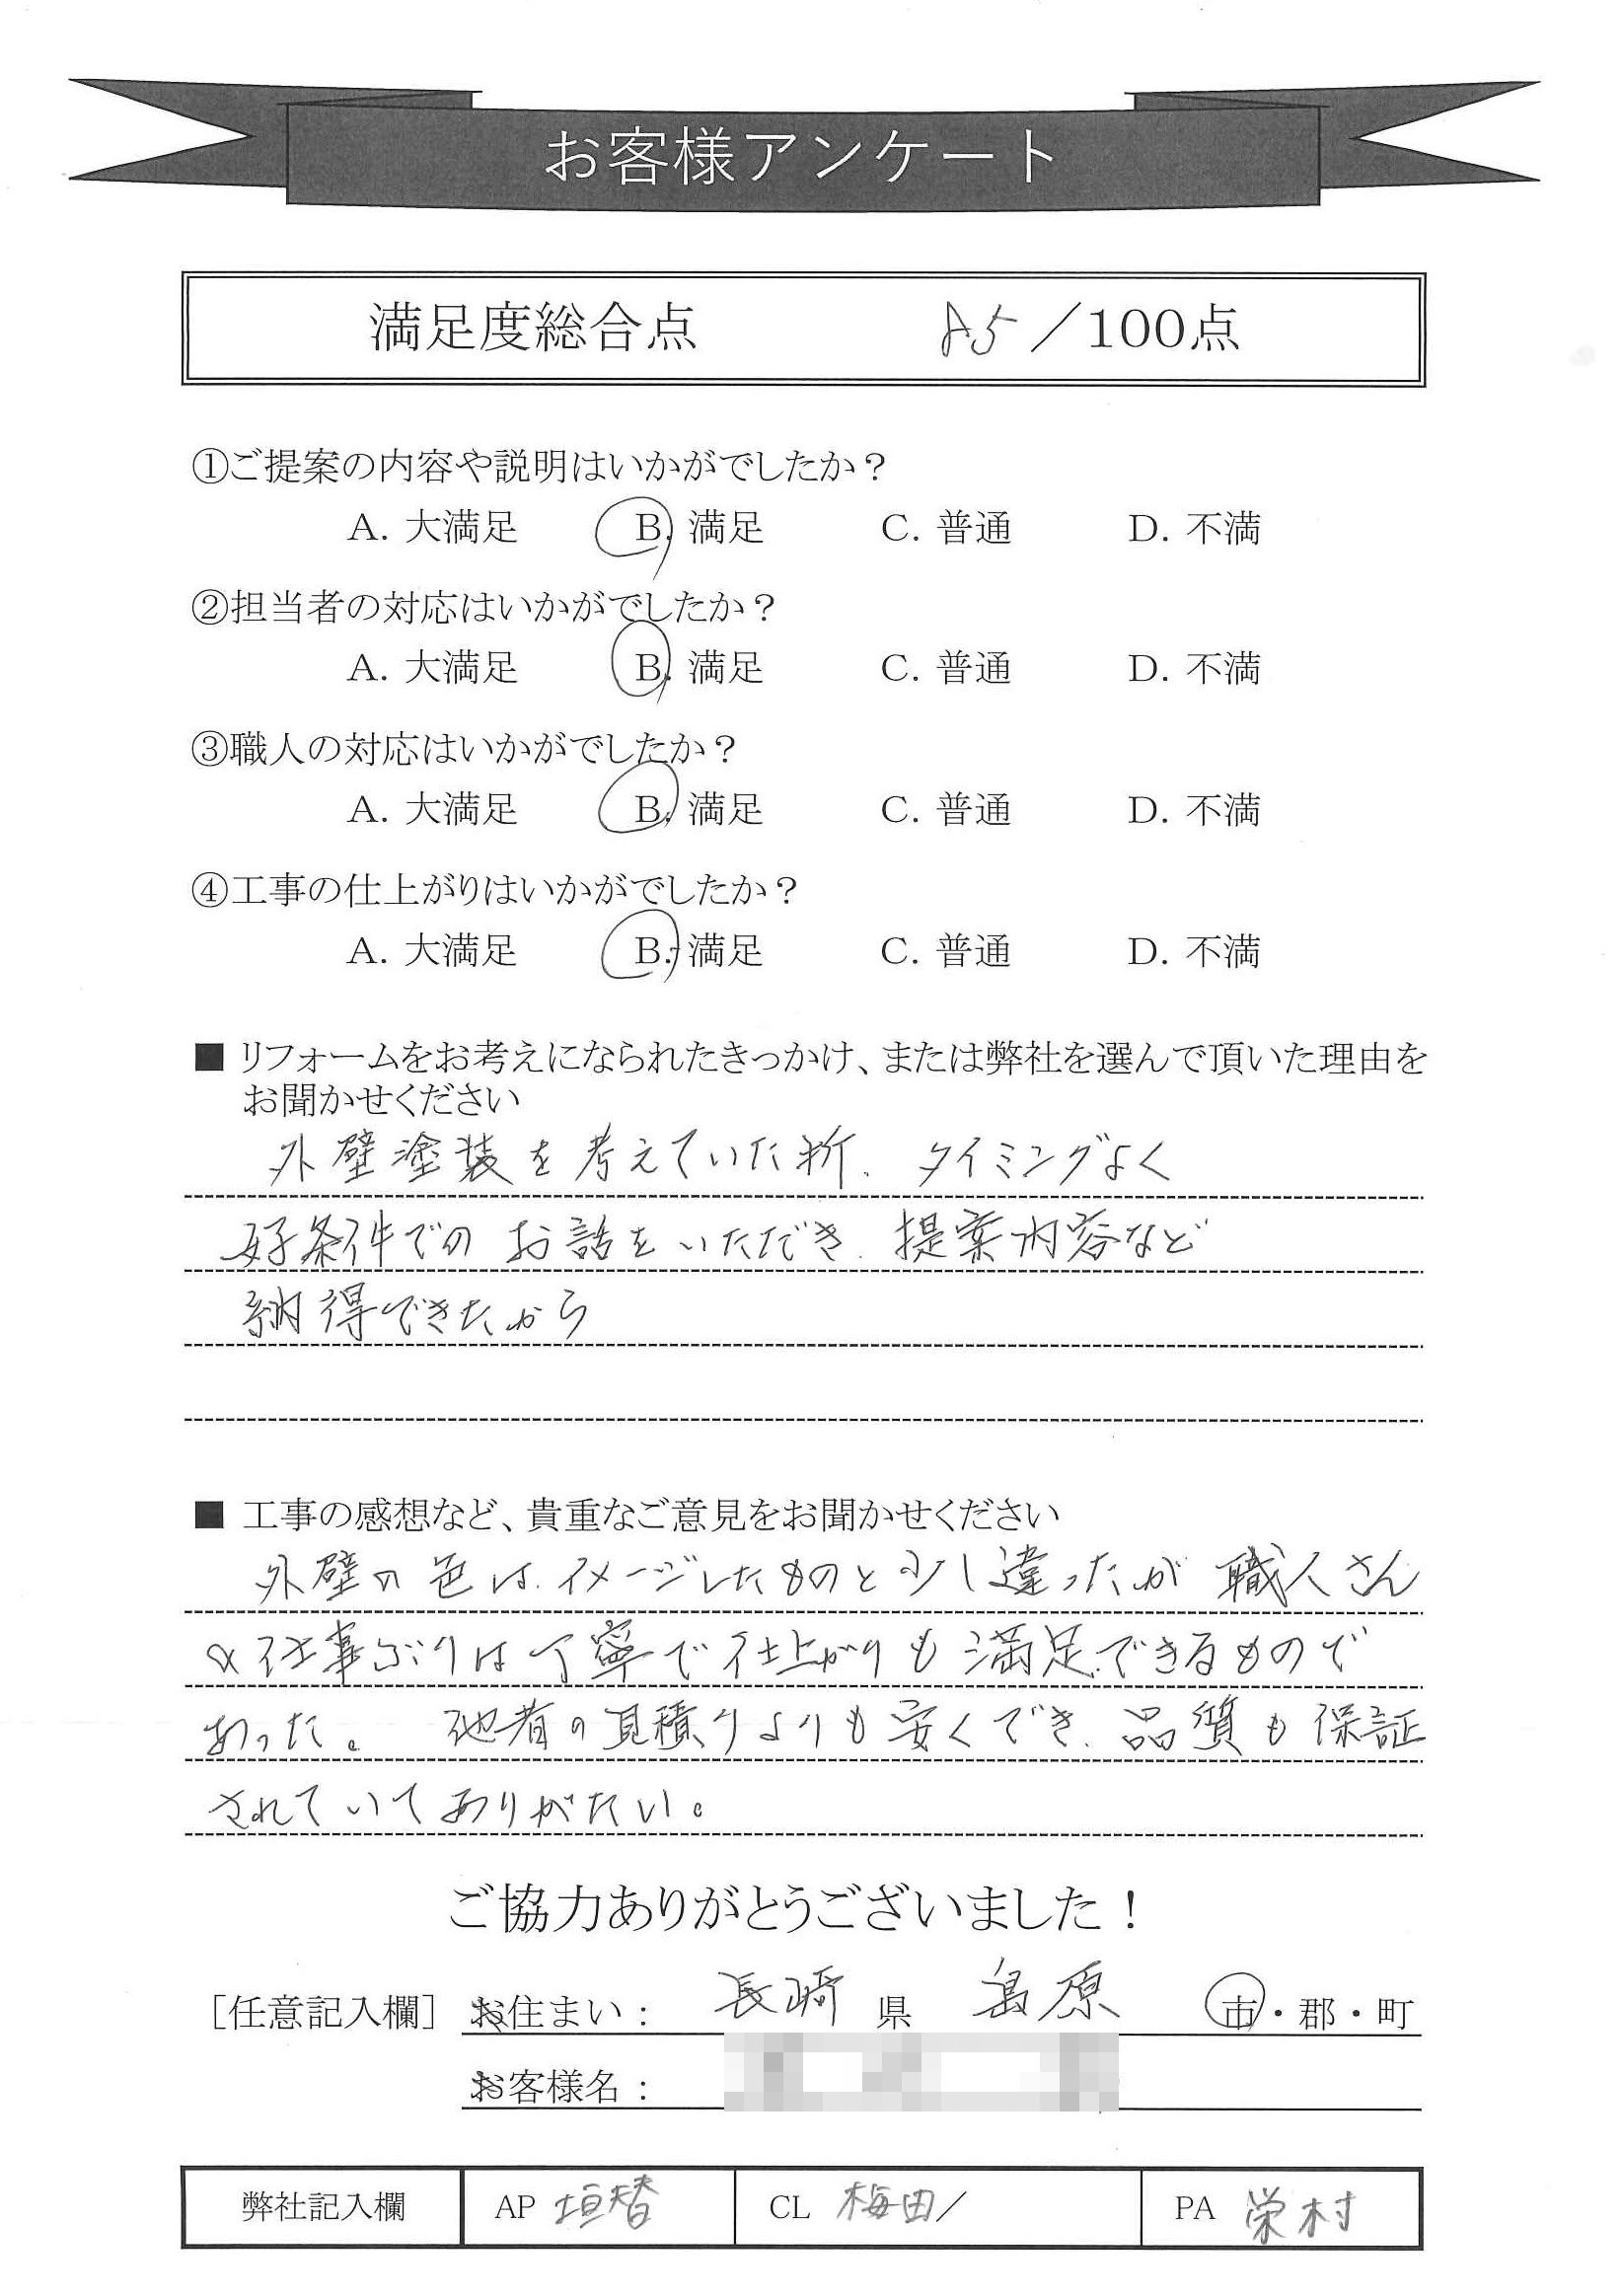 お客様アンケート
満足度総合点 85／100点
①ご提案の内容や説明はいかがでしたか？
A. 大満足 B. 満足 C. 普通 D. 不満
②担当者の対応はいかがでしたか？
A. 大満足 B. 満足 C. 普通 D. 不満
③職人の対応はいかがでしたか？
A. 大満足 B. 満足 C. 普通 D. 不満
④工事の仕上がりはいかがでしたか？
A. 大満足 B. 満足 C. 普通 D. 不満
■ リフォームをお考えになられたきっかけ、または弊社を選んで頂いた理由を
お聞かせください
外壁塗装を考えていた折、タイミングよく
好条件でのお話をいただき、提案内容など
納得できたから
■ 工事の感想など、貴重なご意見をお聞かせください
外壁の色は、イメージしたものと少し違ったが職人さん
の仕事ぶりは丁寧で仕上がりも満足できるもので
あった。他者の見積りよりも安くでき、品質も保証
されていてありがたい。
ご協力ありがとうございました！
［任意記入欄］ お住まい： 長崎 県 島原 市・郡・町
お客様名：
弊社記入欄 AP 垣替 CL 梅田／ PA 栄村